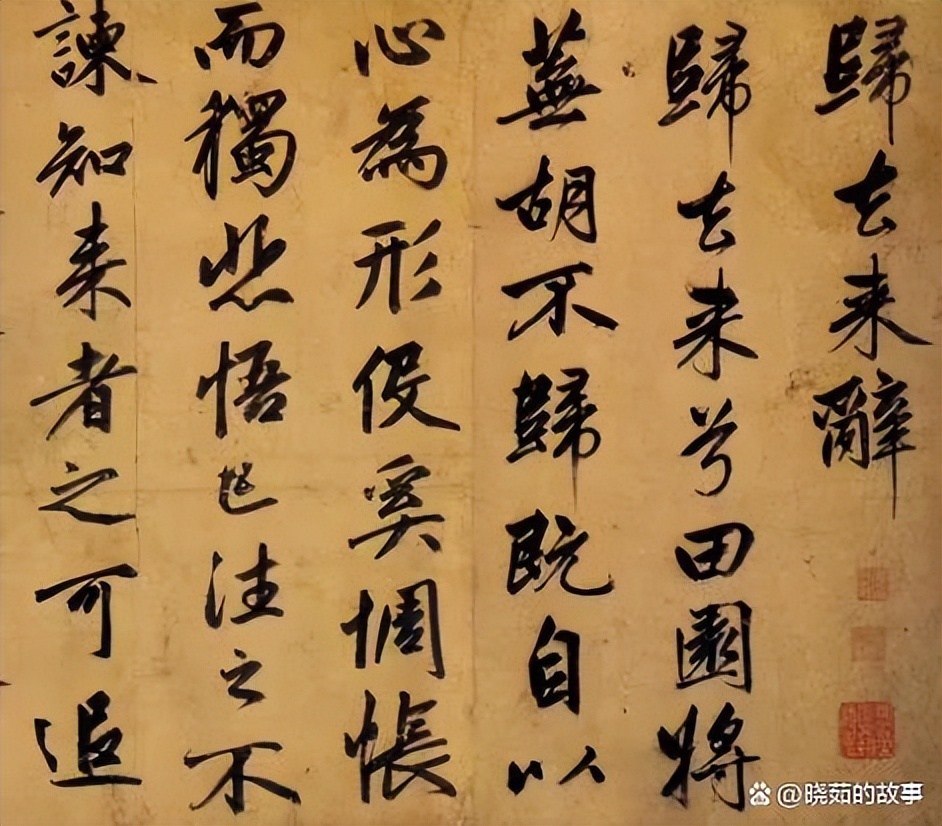 歸去来辭
歸去来兮田園將
蕪胡不歸既自以
心為形役奚惆悵
而獨悲悟已往之不
諫知来者之可追
@晓茹的故事